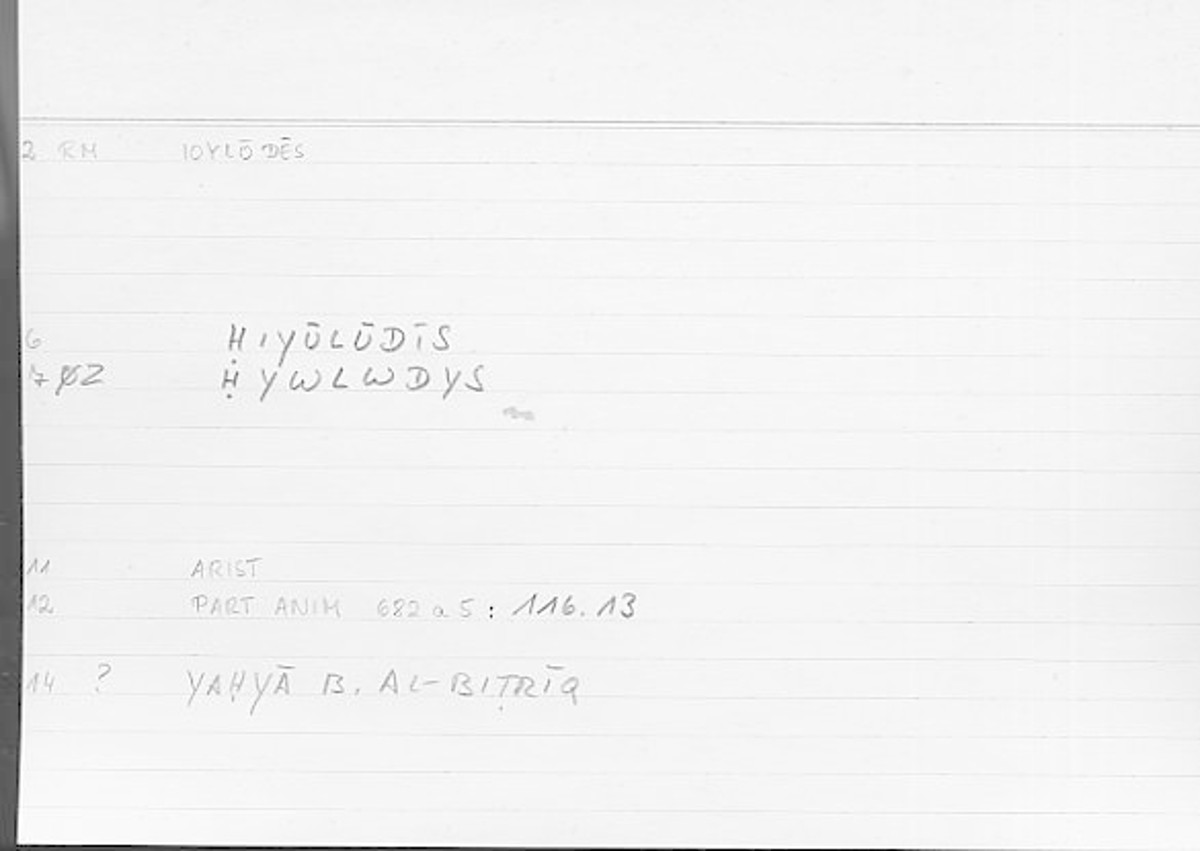 2 RM IOYLŌDĒS
6 ḤIYŪLŪDĪS
7 ØZ ḤYWLWDYS
11 ARIST
12 PART ANIM 682 a 5 : 116.13
14 ? YAḤYĀ B. AL-BIṬRĪQ